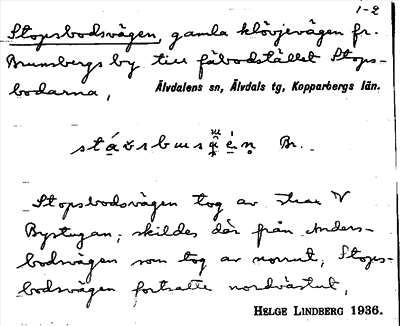 1-2
Stopsbodsvägen, gamla klövjevägen fr.
Brunsbergs by till fäbodstället Stops-
bodarna,
Älvdalens sn, Älvdals tg, Kopparbergs län.
Br.
Stopsbodsvägen tog av strax V
Bystugan; skildes där från Anders-
bodsvägen som tog av norrut, Stops-
bodsvägen fortsatte nordvästut,
HELGE LINDBERG 1936.